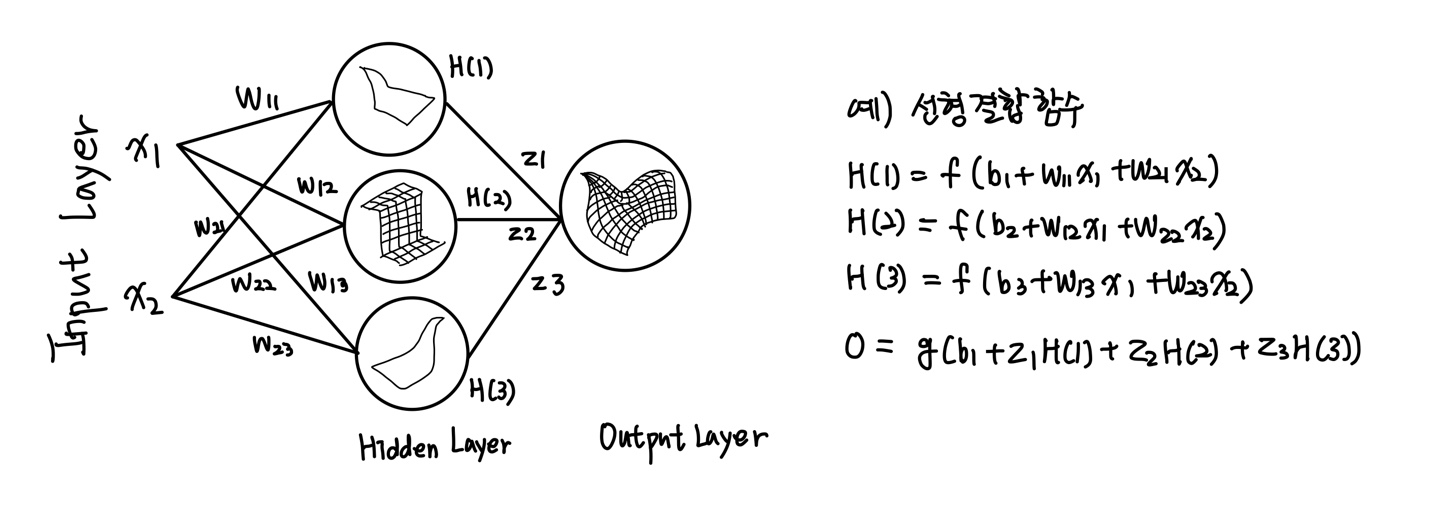 Input Layer
x1
x2
W11
W12
W21
W22
W13
W23
H(1)
H(2)
H(3)
z1
z2
z3
Hidden Layer
Output Layer
예) 선형결합 함수
H(1) = f (b1+W11x1+W21x2)
H(2) = f(b2+W12x1+W22x2)
H(3) = f(b3+W13x1+W23x2)
O = g(b1+z1H(1)+z2H(2)+z3H(3))